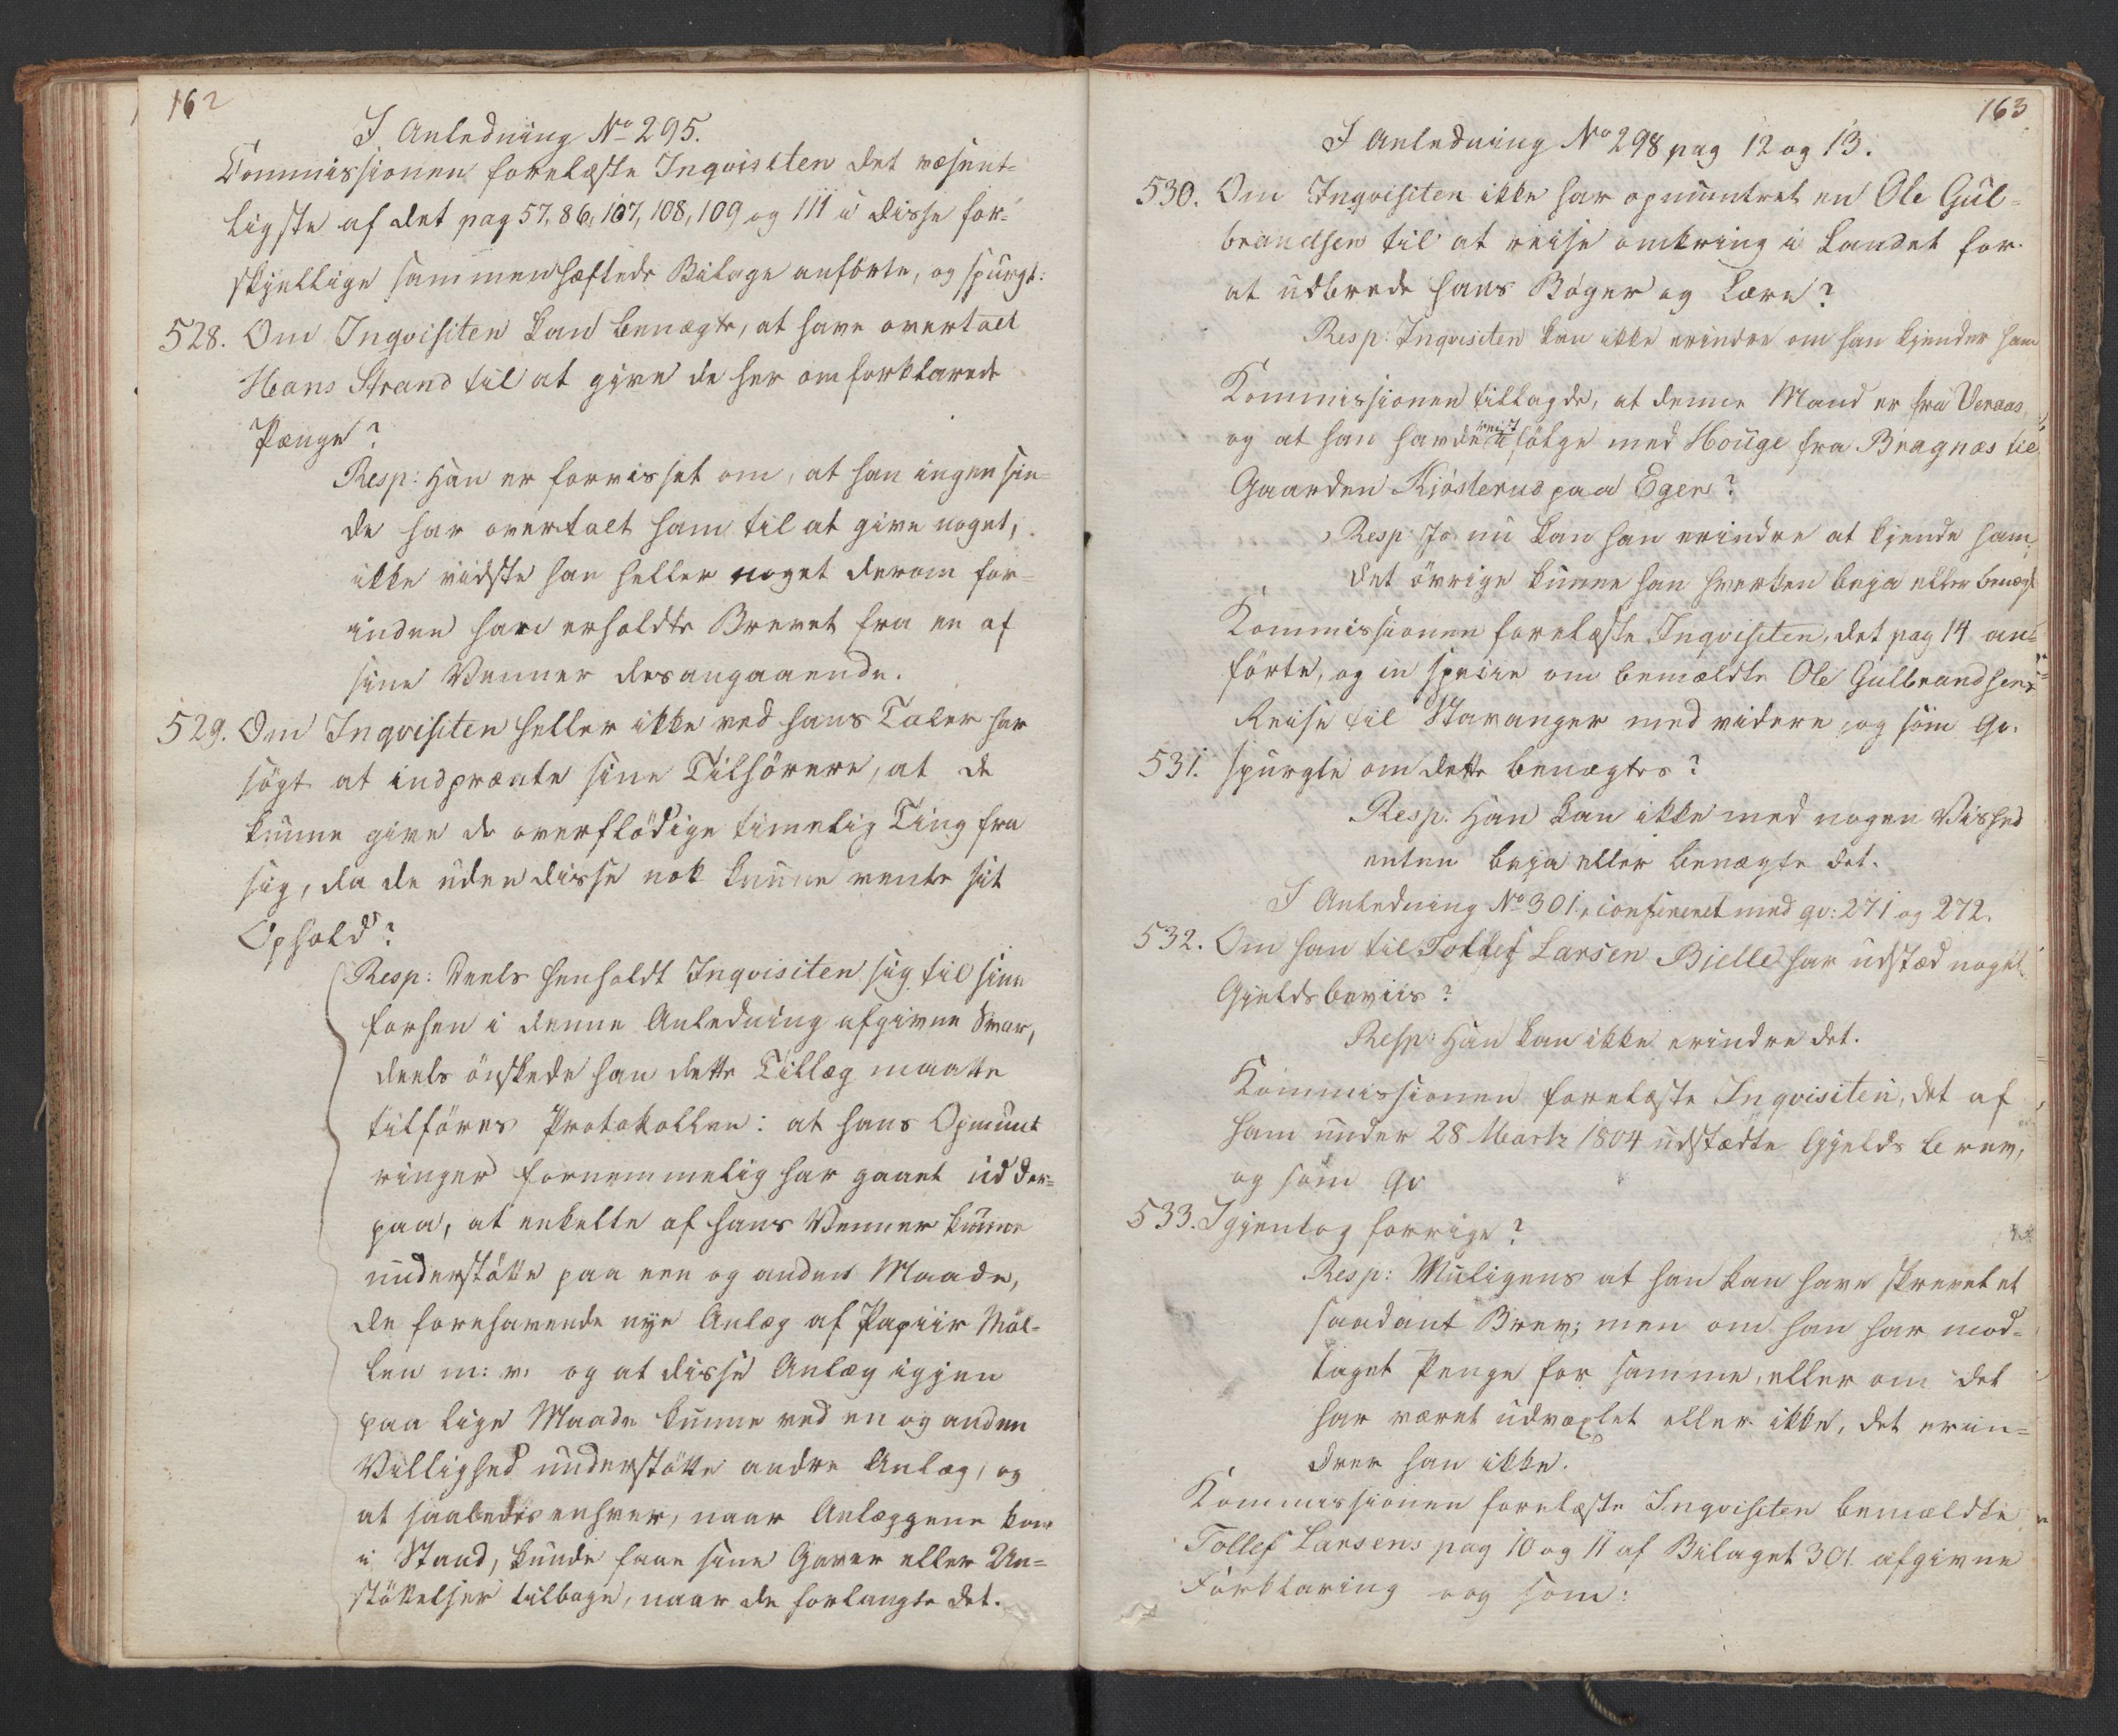 162
I Anledning No 295.
Commissionen forelæste Inqvisiten det væsent-
ligste af det pag 57, 86, 107, 108, 109 og 111 i disse for-
skjellige sammenhæftede Bilage anförte, og spurgt:
528. Om Inqvisiten kan benægte, at have overtalt
Hans Strand til at give de her omforklarede
Penge?
Resp: Han er forvisset om, at han ingensin-
de har overtalt ham til at give noget,
ikke vidste han heller noget derom for-
inden han erholdte Brevet fra en af
sine Venner desangaaende.
529. Om Inqvisiten heller ikke ved hans Taler har
sögt at indprænte sine Tilhörere, at de
kunne give de overflödige timelig Ting fra
sig, da de uden disse nok kunne vente sit
Ophold?
Resp: Deels henholdt Inqvisiten sig til sine
forhen i denne Anledning afgivne Svar,
deels önskede han dette Tillæg maatte
tilföres Protokollen: at hans Opmunt
ringer fornemmelig har gaaet ud der-
paa, at enkelte af hans Venner kunne
understötte paa een og anden Maade,
de forehavende nye Anlæg af Papiir Möl-
len m: v: og at disse Anlæg igjen
paa lige Maade kunne ved en og anden
Villighed understötte andre Anlæg, og
at saaledes enhver, naar Anlæggene kom
i Stand, kunde faae sine Gaver eller Un-
stöttelser tilbage, naar de forlangte det.
163
I Anledning No 298 pag 12 og 13.
530. Om Inqvisiten ikke har opmuntret en Ole Gul-
brandsen til at reise omkring i Landet for
at udbrede hans Böger og Lære?
Resp: Inqvisiten kan ikke erindre om han kjender ham
Kommissionen tillagde, at denne Mand er fra
og at han havde reist i fölge med Houge fra Bragnæs til
Gaarden Kiösterud paa Eger?
Resp: Jo nu kan han erindre at kjende ham,
det övrige kunne han hverken beja eller benægt
Kommissionen forelæste Inqvisiten, det pag 14 an-
förte, og in specie om bemældte Ole Gulbrandsens
Reise til Stavanger med videre, og som Qv.
531. spurgte om dette benægtes?
Resp: Han kan ikke med nogen Vished
enten beja eller benægte det.
I Anledning No 301, confereret med qv: 271 og 272.
532. Om han til Tollef Larsen Bielle har udstæd noget
Gjeldsbeviis?
Resp: Han kan ikke erindre det.
Kommissionen forelæste Inqvisiten, det af
ham under 28 Martz 1804 udstædte Gjelds brev,
og som Qv
533. Igjentog forrige?
Resp: Muligens at han kan have skrevet et
saadant Brev; men om han har mod-
taget Penge for samme, eller om det
har været udvexlet eller ikke, det erin-
drer han ikke.
Kommissionen forelæste Inqvisiten bemældte
Tollef Larsens pag 10 og 11 af Bilaget 301 afgivne
Forklaring og som: